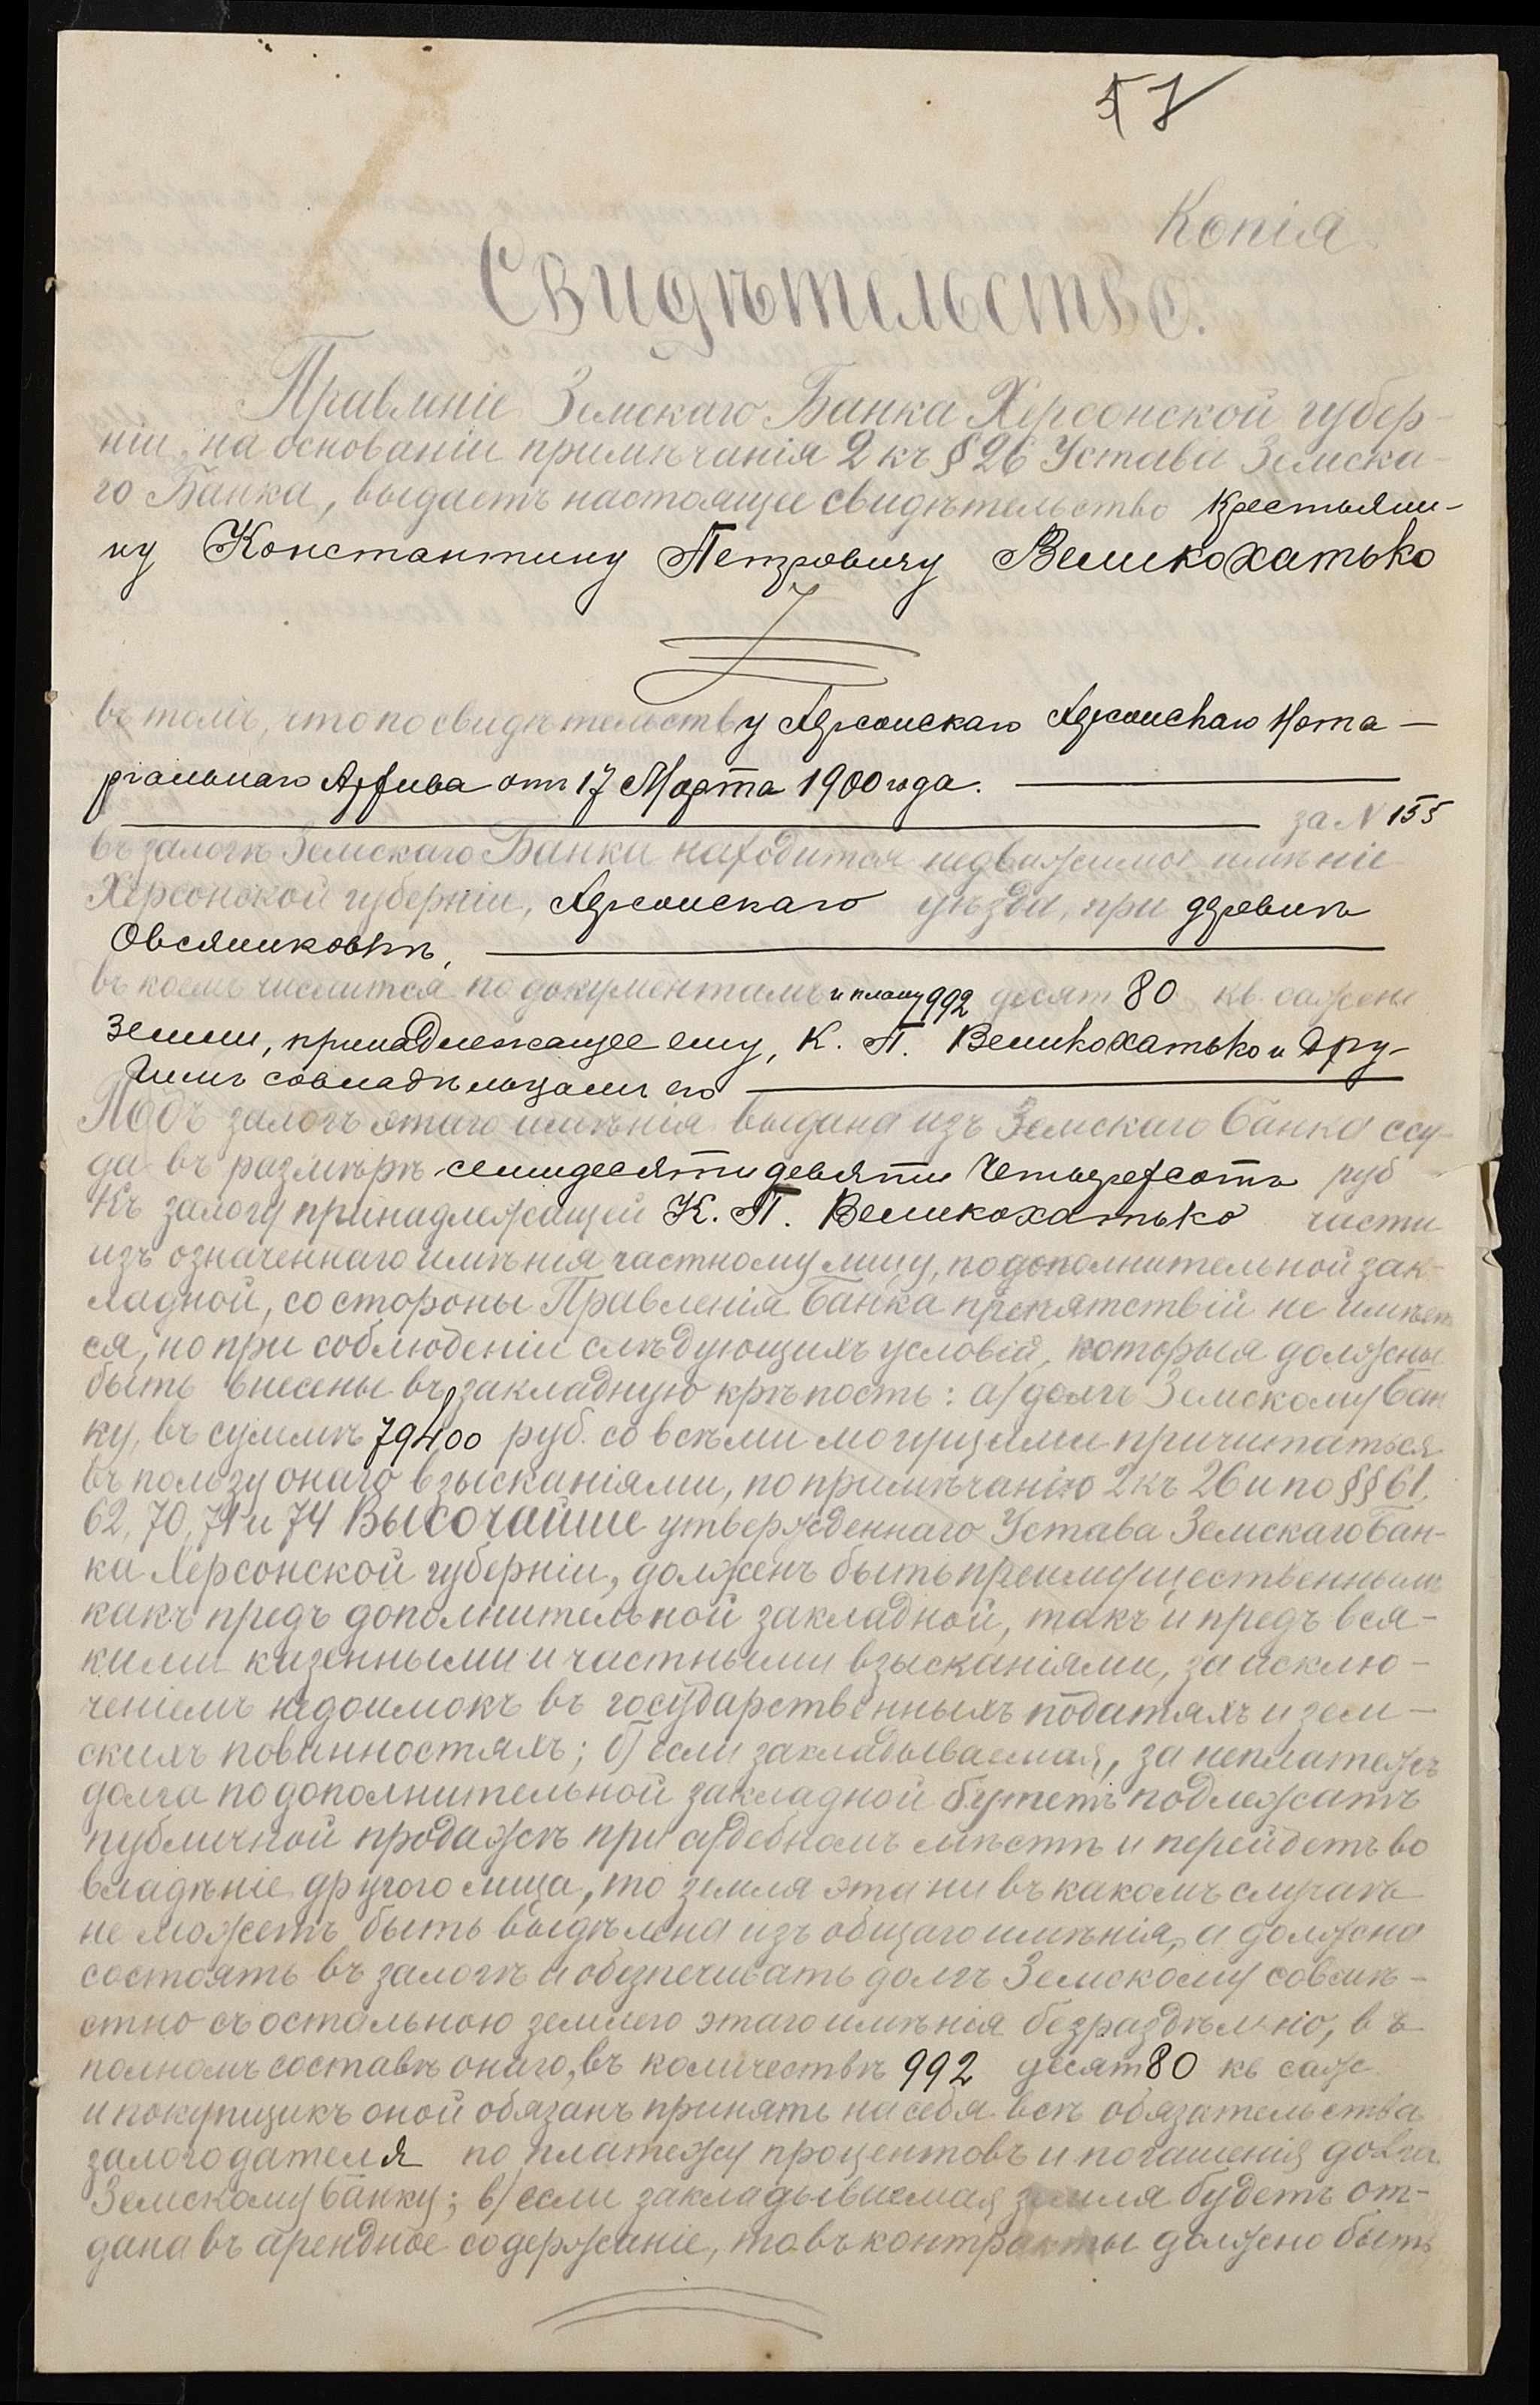 57
Копія
Свидѣтельство.
Правленіе Земскаго Банка Херсонской губер-
ніи, на основаніи примѣчанія 2 къ § 26 Устава Земска-
го Банка, выдаетъ настоящее свидѣтельство крестьяни-
ну Константину Петровичу Великохатько
въ томъ, что по свидѣтельству Херсонскаго Херсонскаго Нота-
ріальнаго Архива отъ 17 Марта 1900 года.
за N 155
въ залогѣ Земскаго Банка находится недвижимое имѣніе
Херсонской губерніи, Херсонскаго уѣзда, при деревнѣ
Овсяниковкѣ,
въ коемъ числится по документамъ и плану 992 десят 80 кв. сажени
земли, принадлежащее ему, К. П. Великохатько и дру-
гимъ совладѣльцамъ его
Подъ залогъ этаго имѣнія выдана изъ Земскаго Банка ссу-
да въ размѣрѣ семидесяти девяти четырехсотъ руб
Къ залогу принадлежащей К. П. Великохатько части
изъ означеннаго имѣнія частному лицу, по дополнительной зак-
ладной, со стороны Правленія Банка препятствій не имѣет
ся, но при соблюденіи слѣдующихъ условій, которыя должны
быть внесены въ закладную крѣпость: а) долгъ Земскому Бан
ку, въ суммѣ 79400 руб. со всѣми могущими причитаться
въ пользу онаго взысканіями, по примѣчанію 2 къ 26 и по §§ 61,
62, 70, 71 и 74 Высочайше утвержденнаго Устава Земскаго Бан-
ка Херсонской губерніи, долженъ быть преимущественнымъ
какъ предъ дополнительной закладной, такъ и предъ вся-
кими казенными и частными взысканіями, за исклю-
ченіемъ недоимокъ въ государственныхъ податяхъ и зем-
скихъ повинностяхъ; б) если закладываемая, за неплатежъ
долга по дополнительной закладной будетъ подлежать
публичной продажѣ при судебномъ мѣстѣ и перейдетъ во
владѣніе другого лица, то земля эта ни въ какомъ случаѣ
не можетъ быть выдѣлена изъ общаго имѣнія, а должна
состоять въ залогѣ и обезпечивать долгъ Земскому совмѣ-
стно съ остальною землею этаго имѣнія безраздѣльно, въ
полномъ составѣ онаго, въ количествѣ 992 десят 80 кв саж
и покупщикъ оной обязанъ принять на себя всѣ обязательства
залогодателя по платежу процентовъ и погашенія долга
Земскому Банку; в) если закладываемая земля будетъ от-
дана въ арендное содержаніе, то въ контракты должно быть